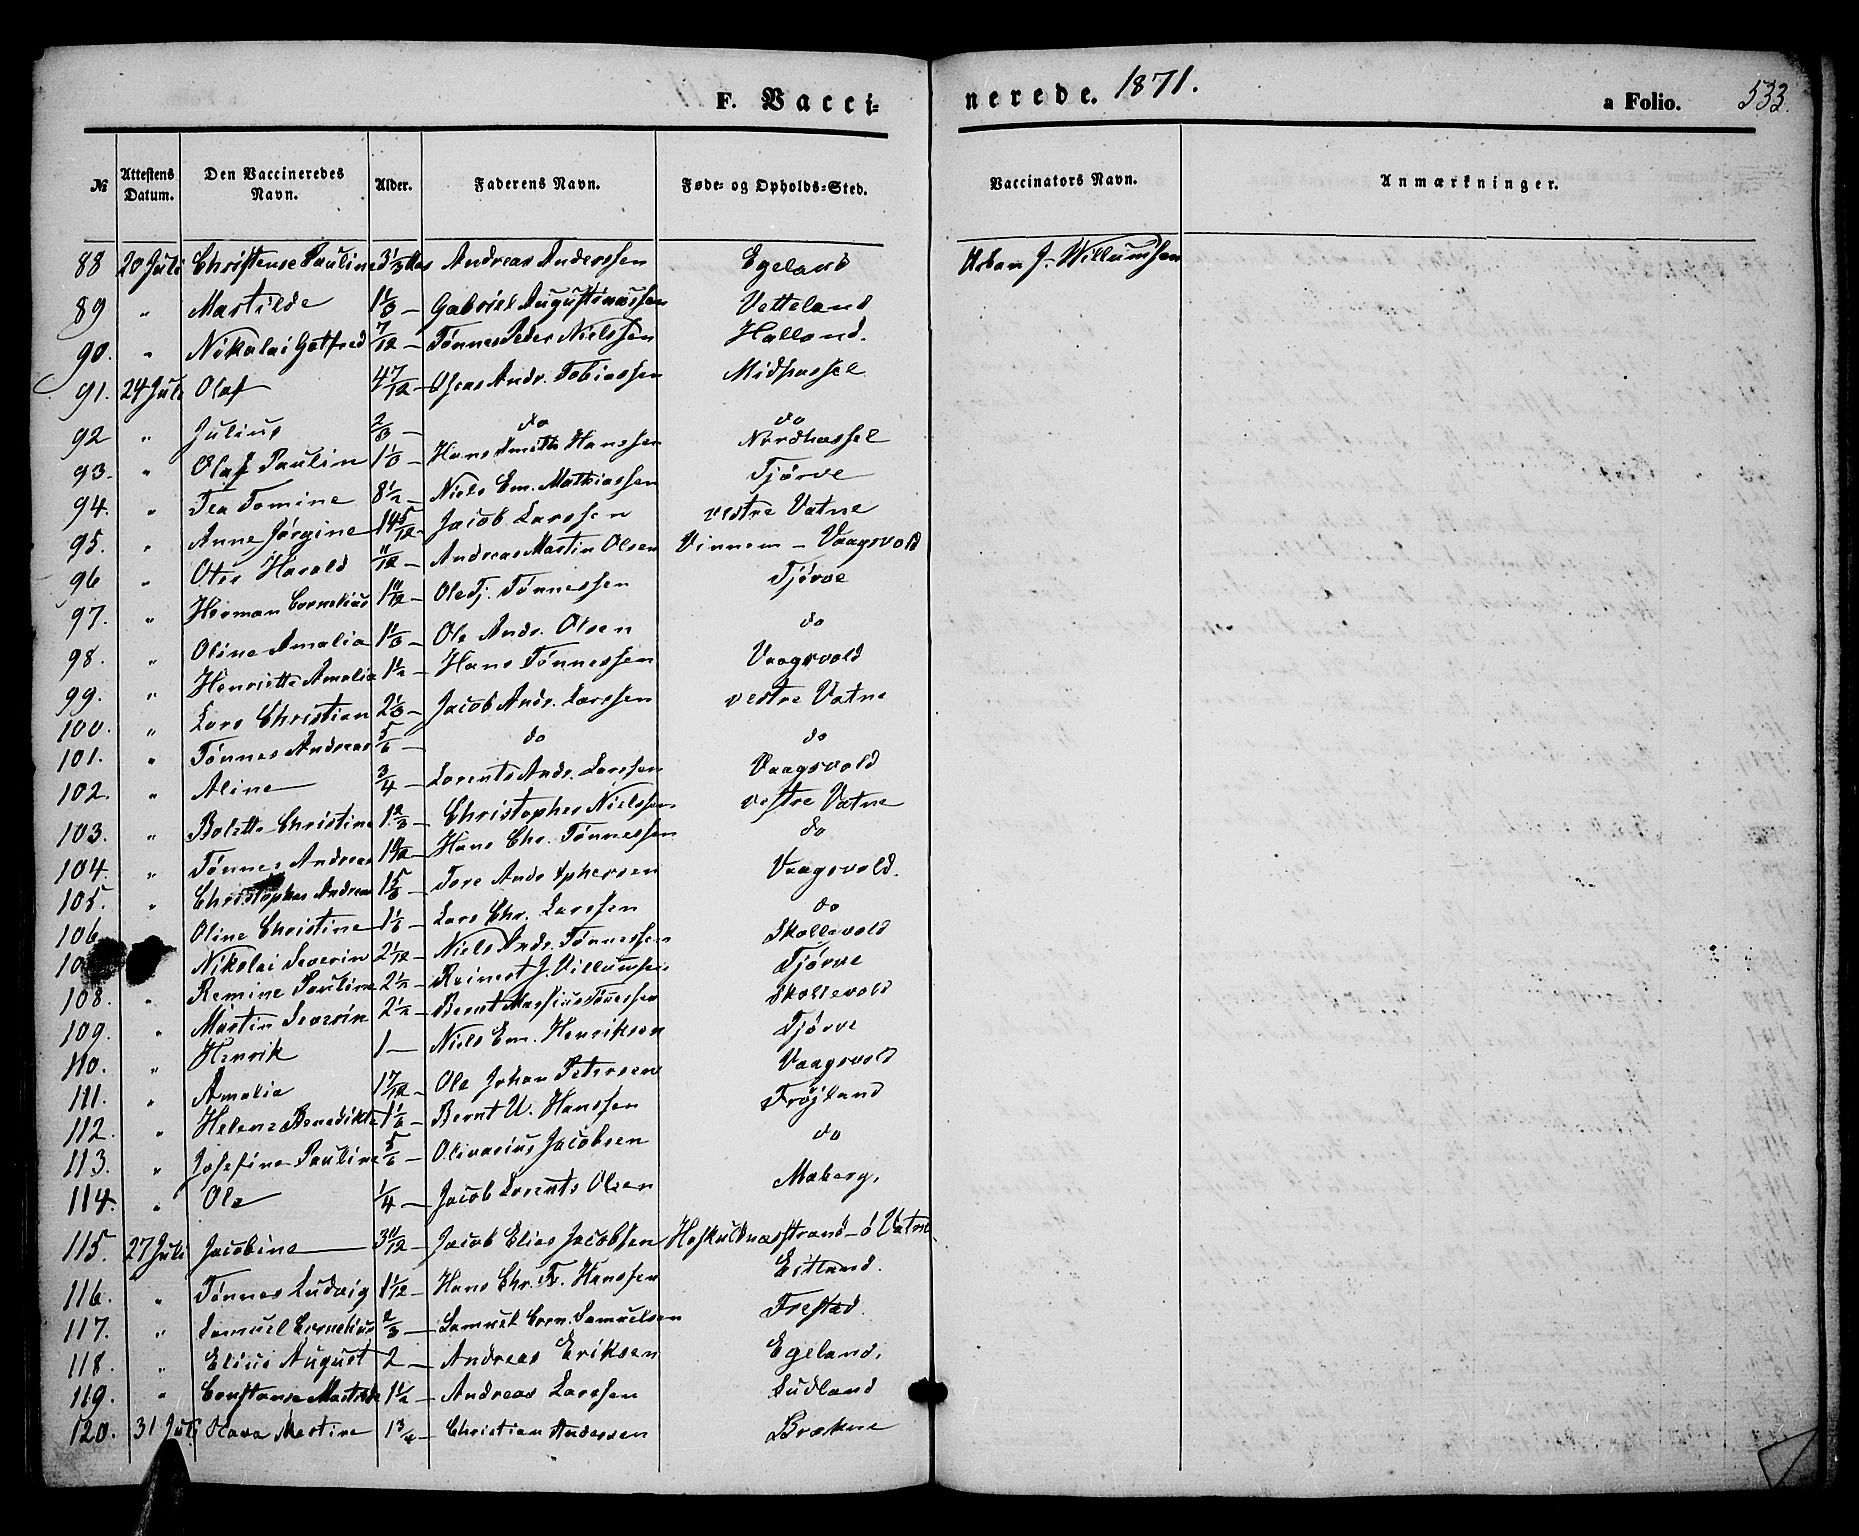 F. Vacci-
nerede. 1871.
a Folio. 533.
№ Attestens Datum. Den Vaccineredes Navn. Alder. Faderens Navn. Føde- og Opholds-Sted. Vaccinators Navn. Anmærkninger.
88 20 Juli Christense Pauline 3 1/3 Andreas Anderssen Egeland Urban J. Willumsen
89 " Mastilde 1 1/3 — Gabriel Augustinussen Vetteland
90. " Nikolai Gotfred 7/12 — Tønnes Peder Nielssen Halland.
91. 24 Juli Olaf 4 7/12 — Oseas Andr. Tobiassen Midhassel
92 " Julius 2/3 — do do
93. " Olaf Paulin 1 1/3 — Hans Hanssen Nordhassel
94. " Tea Tomine 8 1/2 — Niels Em. Mathiassen Tjørve
95. " Anne Jørgine 14 5/12 — Jacob Larssen vestre Vatne
96 " Otto Harald 11/12 — Andreas Martin Olsen Vinnem — Vaagsvold
97. " Herman Cornelius 1 11/12 — Ole Tj. Tønnessen Tjørve
98. " Oline Amalia 1 1/3 — Ole Andr. Olsen do
99. " Henriette Amalia 1 1/2 — Hans Tønnessen Vaagsvold
100. " Lars Christian 2 1/3 — Jacob Andr. Larssen vestre Vatne
101. " Tønnes Andreas 5/6 — do do
102. " Aline 3/4 — Lorents Andr. Larssen Vaagsvold
103. " Bolette Christine 1 2/3 — Christopher Nielssen vestre Vatne
104. " Tønnes Andreas — Hans Chr. Tønnessen do
105. " Christopher Andreas — Tore Andr. Vaagsvold.
106. Oline Christine 1 1/6 — Lars Chr. Larssen do
10 Nikolai Severin 2 1/12 — Niels Andr. Tønnessen Skollevold
108. " Remine Pauline 2 1/2 — Reinert J. Villumsen Tjørve
109. " Martin Severin 2 1/2 — Bernt Tønnessen Skollevold
110. " Henrik 1 — Niels Em. Henriksen Tjørve
111. " Amalia 1 7/12 — Ole Johan Petersen Vaagsvold
112. " Helene Benedikte 1 1/6 — Bernt U. Hanssen Frøjland
113. " Josefine Pauline 5/6 — Olivarius Jacobsen do
114. " Ole 1/4 — Jacob Lorents Olsen Maberg,
115. 27 Juli Jacobine 3 11/12 — Jacob Elias Jacobsen Hoskuldnæsstrand — ö Vatne
116. " Tønnes Ludvig 1 1/12 — Hans Chr. Fr. Hanssen Eitland.
117. " Samuel Cornelius 2/3 — Samuel Corn. Samuelsen Frestad.
118. " Elius August 2 — Andreas Eriksen Egeland,
119. " Constanse Mastilde 1 1/2 — Andreas Larssen Sudland
120. 31 Juli Olava Mastine 1 3/4 — Christian Andersen Brækne